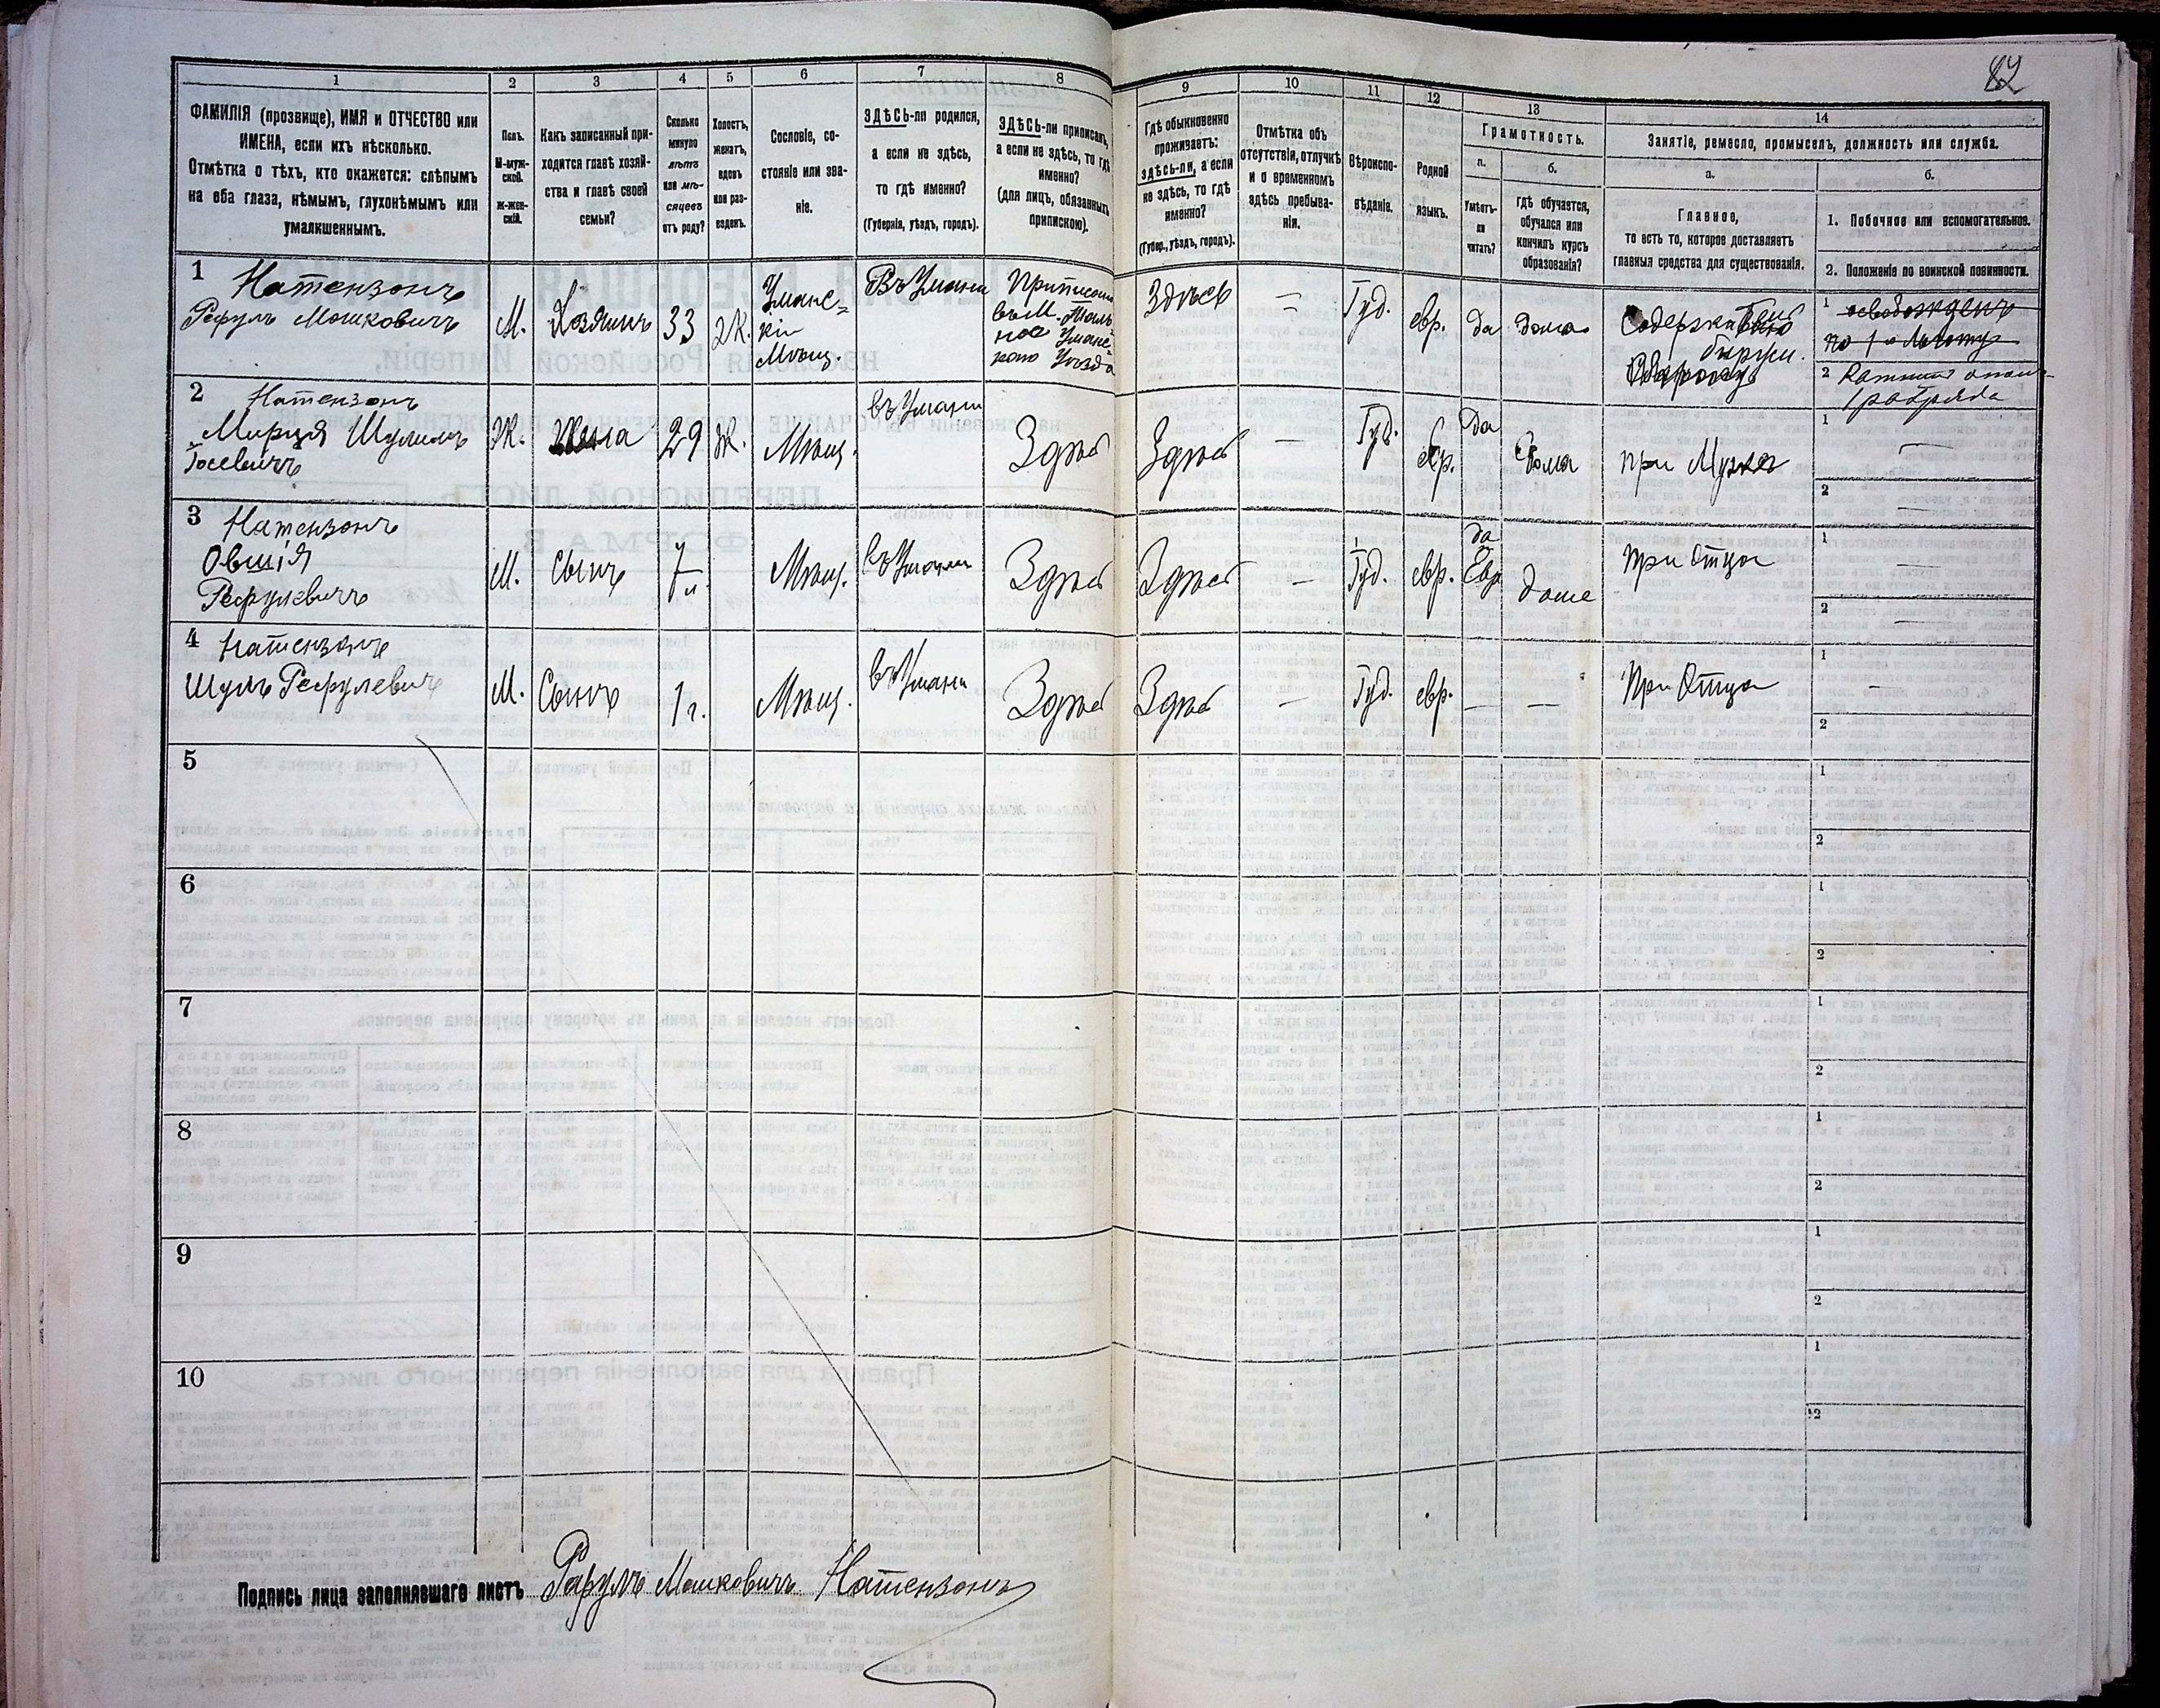 82
1
2
3
4
5
6
7
8
9
10
11
12
13
14
ФАМИЛІЯ (прозвище), ИМЯ и ОТЧЕСТВО или
ИМЕНА, если ихъ нѣсколько.
Отмѣтка о тѣхъ, кто окажется: слѣпымъ
на оба глаза, нѣмымъ, глухонѣмымъ или
умалишеннымъ.
Полъ.
М-муж-
ской.
Ж-жен-
скій.
Какъ записанный при-
ходится главѣ хозяй-
ства и главѣ своей
семьи?
Сколько
минуло
лѣтъ
или мѣ-
сяцевъ
отъ роду?
Холостъ,
женатъ,
вдовъ
или раз-
веденъ.
Сословіе, со-
стояніе или зва-
ніе.
ЗДѢСЬ-ли родился,
а если не здѣсь,
то гдѣ именно?
(Губернія, уѣздъ, городъ).
ЗДѢСЬ-ли приписанъ,
а если не здѣсь, то гдѣ
именно?
(для лицъ, обязанныхъ
припискою).
Гдѣ обыкновенно
проживаетъ:
здѣсь-ли, а если
не здѣсь, то гдѣ
именно?
(Губер., уѣздъ, городъ).
Отмѣтка объ
отсутствіи, отлучкѣ
и о временномъ
здѣсь пребыва-
ніи.
Вѣроиспо-
вѣданіе.
Родной
языкъ.
Грамотность.
а.
б.
Умѣетъ-
ли
читать?
гдѣ обучается,
обучался или
кончилъ курсъ
образованія?
Занятіе, ремесло, промыселъ, должность или служба.
а.
б.
Главное,
то есть то, которое доставляетъ
главныя средства для существованія.
1. Побочное или вспомогательное.
2. Положеніе по воинской повинности.
1 Натензонъ
Рефулъ Мошковичъ
М.
Хозяинъ
33
Ж.
Уманс=
кій
Мѣщ.
Въ Умани
въ М. Таль
ное Уманс-
каго Уѣзда
Здѣсь
=
Іуд.
евр.
да
дома
биржи.
1 освобожденъ
по 1й льготу
2
разряда
2 Натензонъ
Ж.
Жена
29
Ж.
Мѣщ.
въ Умани
Здѣсь
Здѣсь
—
Іуд.
евр.
да
Дома
при Мужѣ
1 —
2 —
3 Натензонъ
Овшія
Рефулевичъ
М.
Сынъ
7 л.
Мѣщ.
въ Умани
Здѣсь
Здѣсь
—
Іуд.
евр.
да
Евр
доме
При Отца
1 —
2 —
4 Натензонъ
Шулъ Рефулевичъ
М.
Сынъ
1 г.
Мѣщ.
въ Умани
Здѣсь
Здѣсь
—
Іуд.
евр.
—
—
При Отца
1 —
2
5
1
2
6
1
2
7
1
2
8
1
2
9
1
2
10
1
2
Подпись лица заполнявшаго листъ Рефулъ Мошковичъ Натензонъ